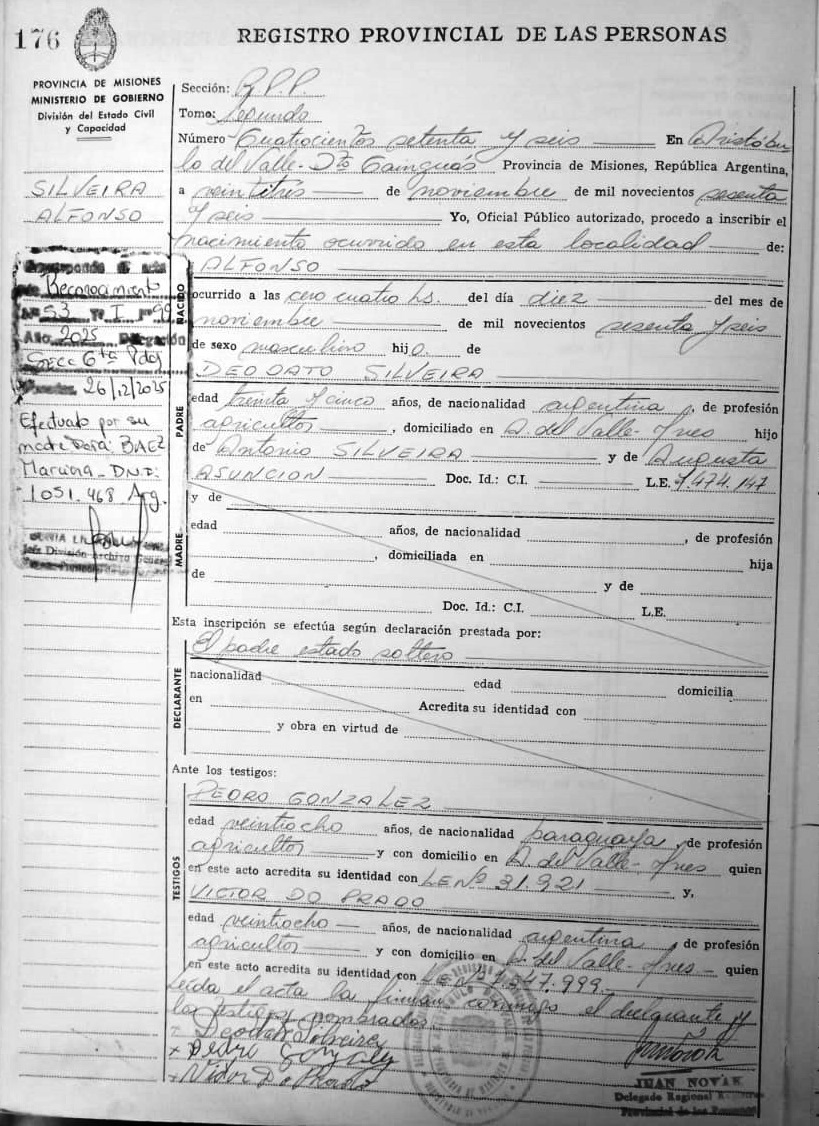 176
REGISTRO PROVINCIAL DE LAS PERSONAS
PROVINCIA DE MISIONES
MINISTERIO DE GOBIERNO
División del Estado Civil
y Capacidad
SILVEIRA
ALFONSO
Corresponde acta
Reconocimiento
Nº 53 Tº I Fº 99
Año 2025 Delegación
Secc 6ta Pdas
Posadas, 26/12/2025
Efectuado por su
madre BAEZ
DNI:
1051.468 Arg.
Jefe División Archivo General
Sección: R.P.P.
Tomo: Segundo
Número Cuatrocientos setenta y seis En Aristóbu
lo del Valle - Dto Cainguás Provincia de Misiones, República Argentina,
a veintitrés de noviembre de mil novecientos sesenta
y seis Yo, Oficial Público autorizado, procedo a inscribir el
nacimiento ocurrido en esta localidad de:
NACIDO
ALFONSO
ocurrido a las cero cuatro hs. del día diez del mes de
noviembre de mil novecientos sesenta y seis
de sexo masculino hijo. de
DEODATO SILVEIRA
PADRE
edad treinta y cinco años, de nacionalidad argentina, de profesión
agricultor, domiciliado en A. del Valle - Mnes hijo
de Antonio SILVEIRA y de Augusta
ASUNCION Doc. Id.: C.I. L.E. 7.474.147
MADRE
y de
edad años, de nacionalidad , de profesión
, domiciliada en hija
de y de
Doc. Id.: C.I. L.E.
Esta inscripción se efectúa según declaración prestada por:
DECLARANTE
El padre estado soltero
nacionalidad edad domicilia
en Acredita su identidad con
y obra en virtud de
Ante los testigos:
TESTIGOS
PEDRO GONZALEZ
edad veintiocho años, de nacionalidad paraguaya, de profesión
agricultor y con domicilio en A. del Valle - Mnes quien
en este acto acredita su identidad con LE Nº 31.921 y,
VICTOR DO PRADO
edad veintiocho años, de nacionalidad argentina, de profesión
agricultor y con domicilio en A. del Valle - Mnes - quien
en este acto acredita su identidad con LE Nº 7.547.999
Leída el acta la firman conmigo el declarante y
los testigos nombrados
+ Deodato Silveira
+ Pedro Gonzalez
+ Victor Do Prado
JUAN NOVAK
Delegado Regional Registro
Provincial de las Personas